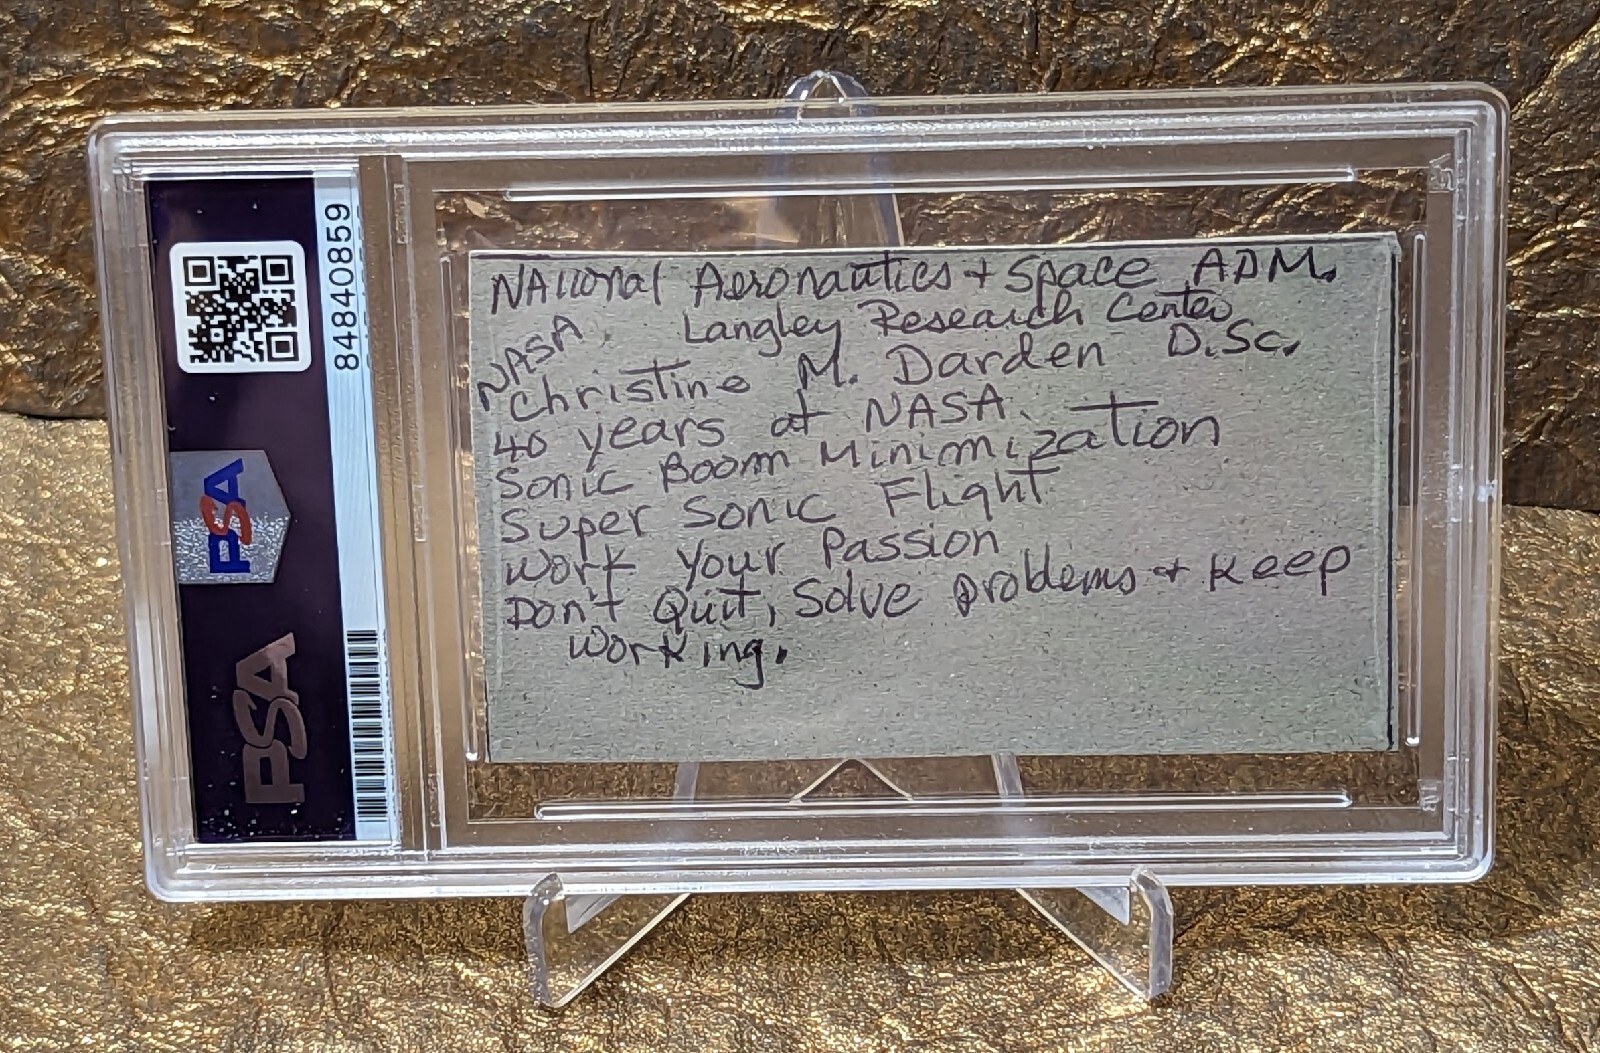 84840859
PSA
PSA
National Aeronautics + Space ADM.
NASA. Langley Research Center
Christine M. Darden D.Sc.
40 years at NASA.
Sonic Boom Minimization
Super Sonic Flight
Work Your Passion
Don't Quit, Solve problems + Keep
working.